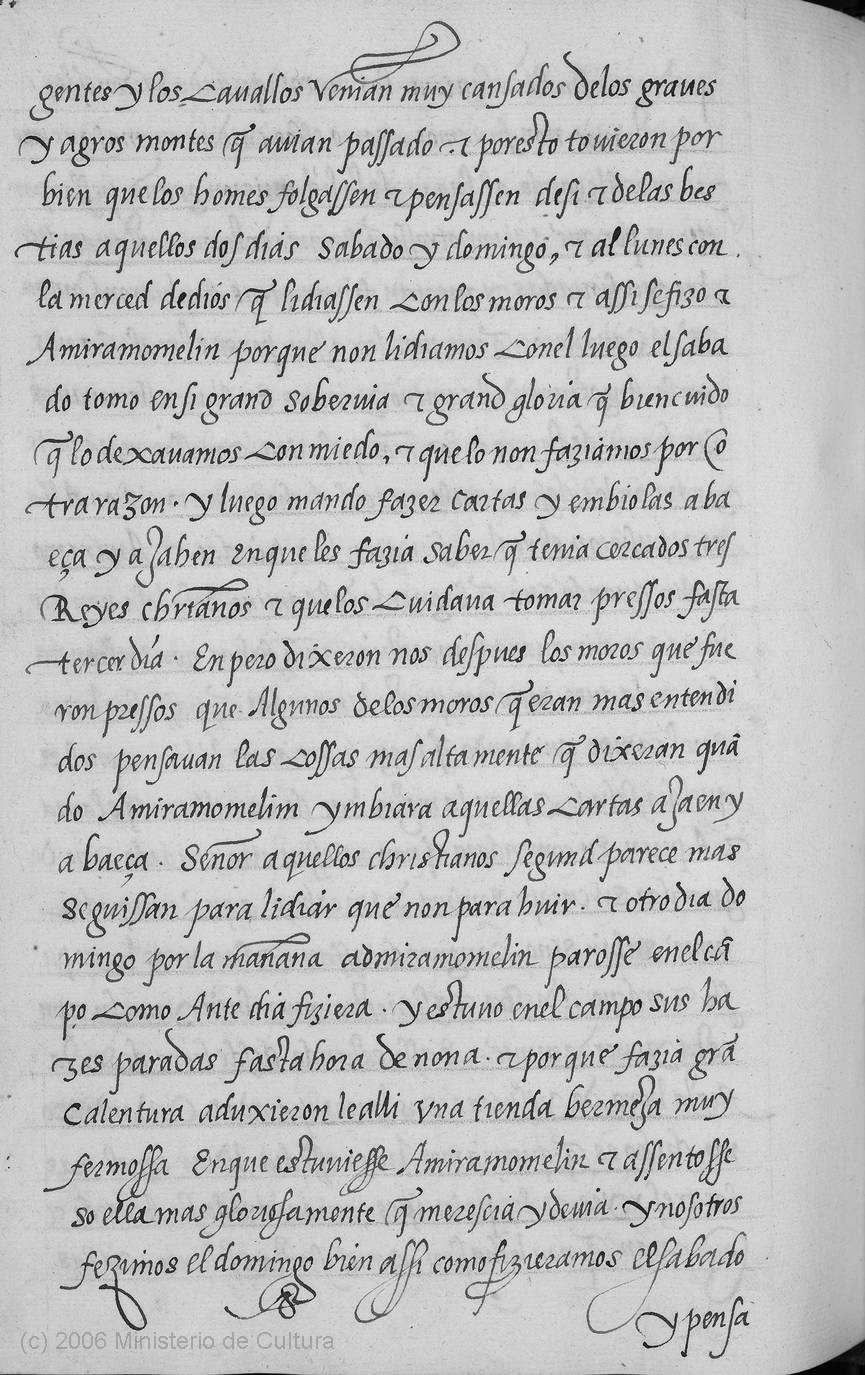 gentes y los cavallos venian muy cansados delos graves
y agros montes q̃ avian passado. τ poresto tovieron por
bien que los homes folgassen τ pensassen desi τ delas bes
tias aquellos dos dias sabado y domingo, τ al lunes con
la merced dedios q̃ lidiassen con los moros τ assi se fizo τ
Amiramomelin porque non lidiamos conel luego el saba
do tomo ensi grand sobervia τ grand gloria q̃ bien cuido
q̃ lo dexavamos con miedo, τ que lo non faziamos por o
tra razon. y luego mando fazer cartas y embiolas a ba
eça y a Jahen Enque les fazia saber q̃ tenia cercados tres
Reyes chrianos τ quelos cuidava tomar pressos fasta
tercer dia. Enpero dixeron nos despues los moros que fue
ron pressos que Algunos delos moros q̃ eran mas entendi
dos pensavan las cossas mas altamente q̃ dixeran quã
do Amiramomelim ymbiara aquellas cartas a Jaen y
a baeça. Señor aquellos christianos segund parece mas
se guissan para lidiar que non para huir. τ otro dia do
mingo por la mañana admiramomelin parosse enel cã
po como Ante dia fiziera. y estuvo enel campo sus ha
zes paradas fasta hora de nona. τ porque fazia grã
Calentura aduxieron le alli vna tienda bermeJa muy
fermossa Enque estuviesse Amiramomelin τ assentosse
so ella mas gloriosamente q̃ merescia y devia. y nosotros
fezimos el domingo bien assi como fizieramos el sabado
y pensa
(c) 2006 Ministerio de Cultura